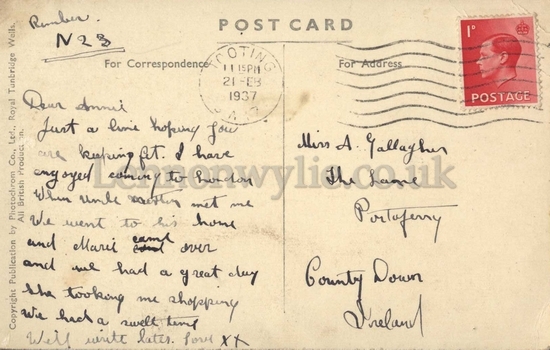 Number
N 23
POST CARD
For Correspondence
For Address
TOOTING
11 15PM
21 FEB
1937
S.W.17
1D
POSTAGE
Dear Annie
Just a line hoping you
are keeping fit. I have
engoyed coming to London
When Uncle met me
We went to his home
and Marie came over
and we had a great day
She tooking me shopping
We had a swell time
Will write later. Love XX
Miss A. Gallagher
The Lane
Portaferry
County Down
Ireland
Copyright Publication by Photochrom Co., Ltd., Royal Tunbridge Wells.
All British Production.
Lemonwylie.co.uk